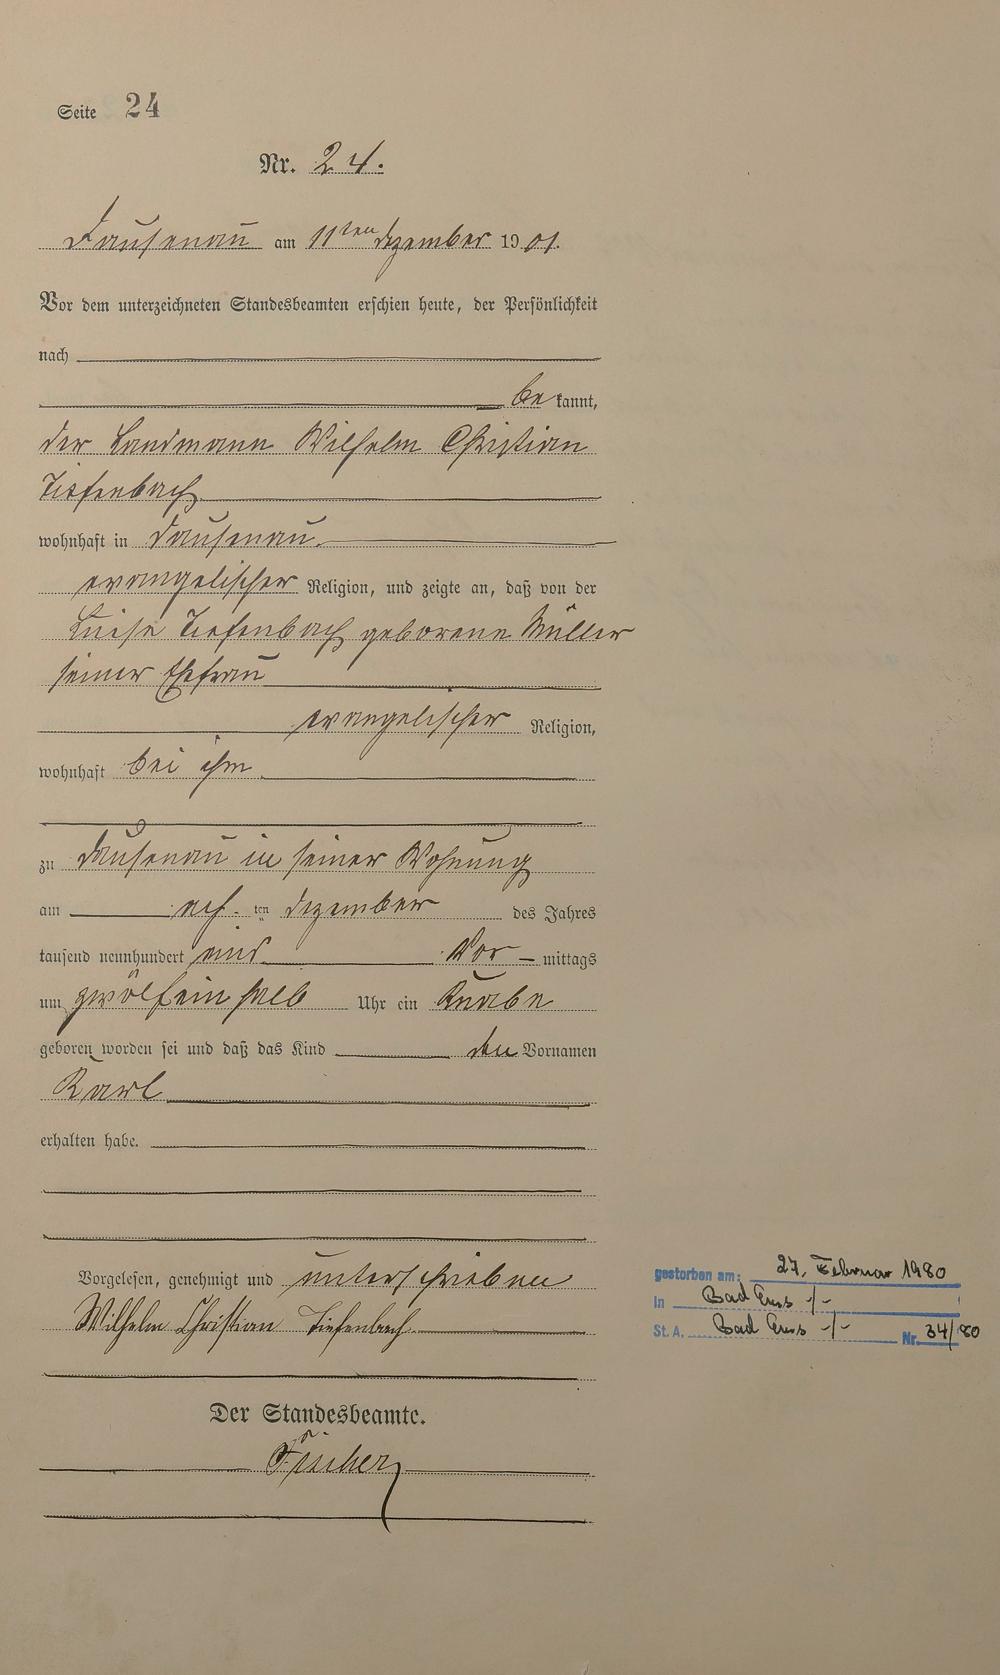 Seite 24
Nr. 24.
Dausenau am 11ten Dezember 1901.
Vor dem unterzeichneten Standesbeamten erschien heute, der Persönlichkeit
nach
bekannt,
der Landmann Wilhelm Christian
Tiefenbach
wohnhaft in Dausenau.
evangelischer Religion, und zeigte an, daß von der
Luise Tiefenbach geborene Müller
seiner Ehefrau
evangelischer Religion,
wohnhaft bei ihm
zu Dausenau in seiner Wohnung
am ten Dezember des Jahres
tausend neunhundert eins Vor mittags
um zwölfeinhalb Uhr ein Knabe
geboren worden sei und daß das Kind den Vornamen
Karl
erhalten habe.
Vorgelesen, genehmigt und unterschrieben
Wilhelm Christian Tiefenbach
Der Standesbeamte.
Fischer
gestorben am: 27. Februar 1980
In Bad Ems -/-
St. A. Bad Ems -/- Nr. 34/80